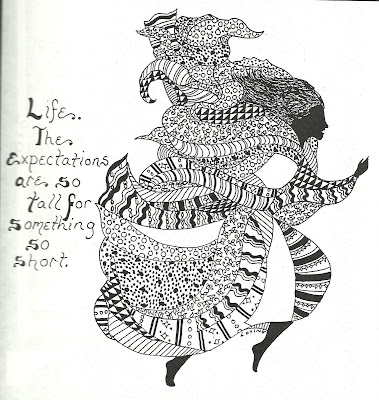 Life.
The
expectations
are so
tall for
something
so
short.